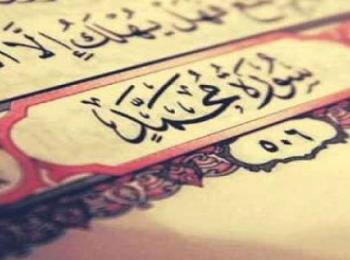 فَهَلْ يُهْلَكُ إِلَّا
سُورَةُ مُحَمَّدٍ
٥٠٦